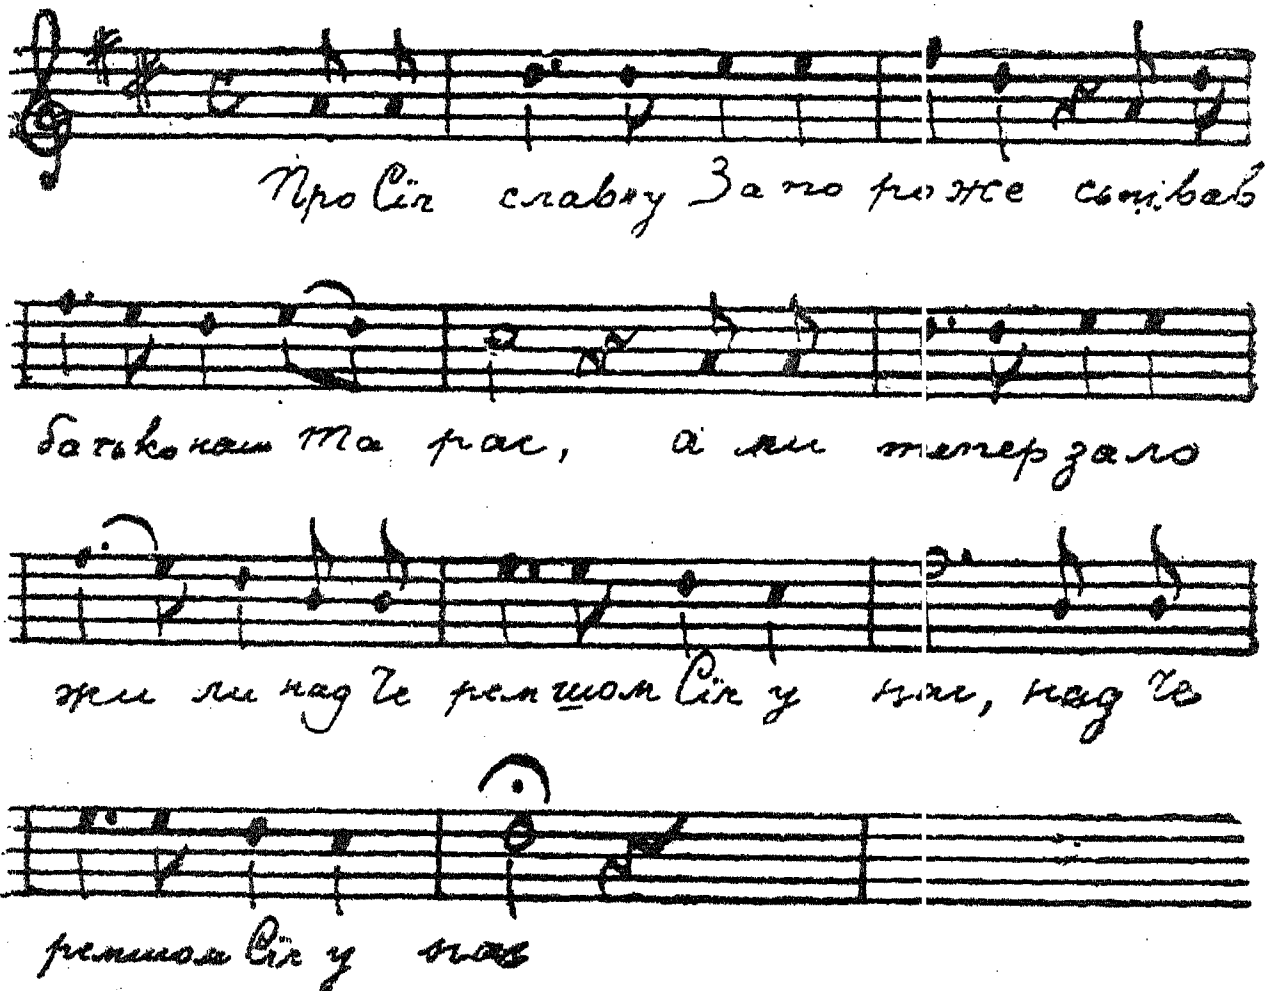 Про Січ славну Запороже сьпівав
батько наш Тарас, а ми тепер зало
жи ли над Че ремшом Січ у нас, над Че
ремшом Січ у нас